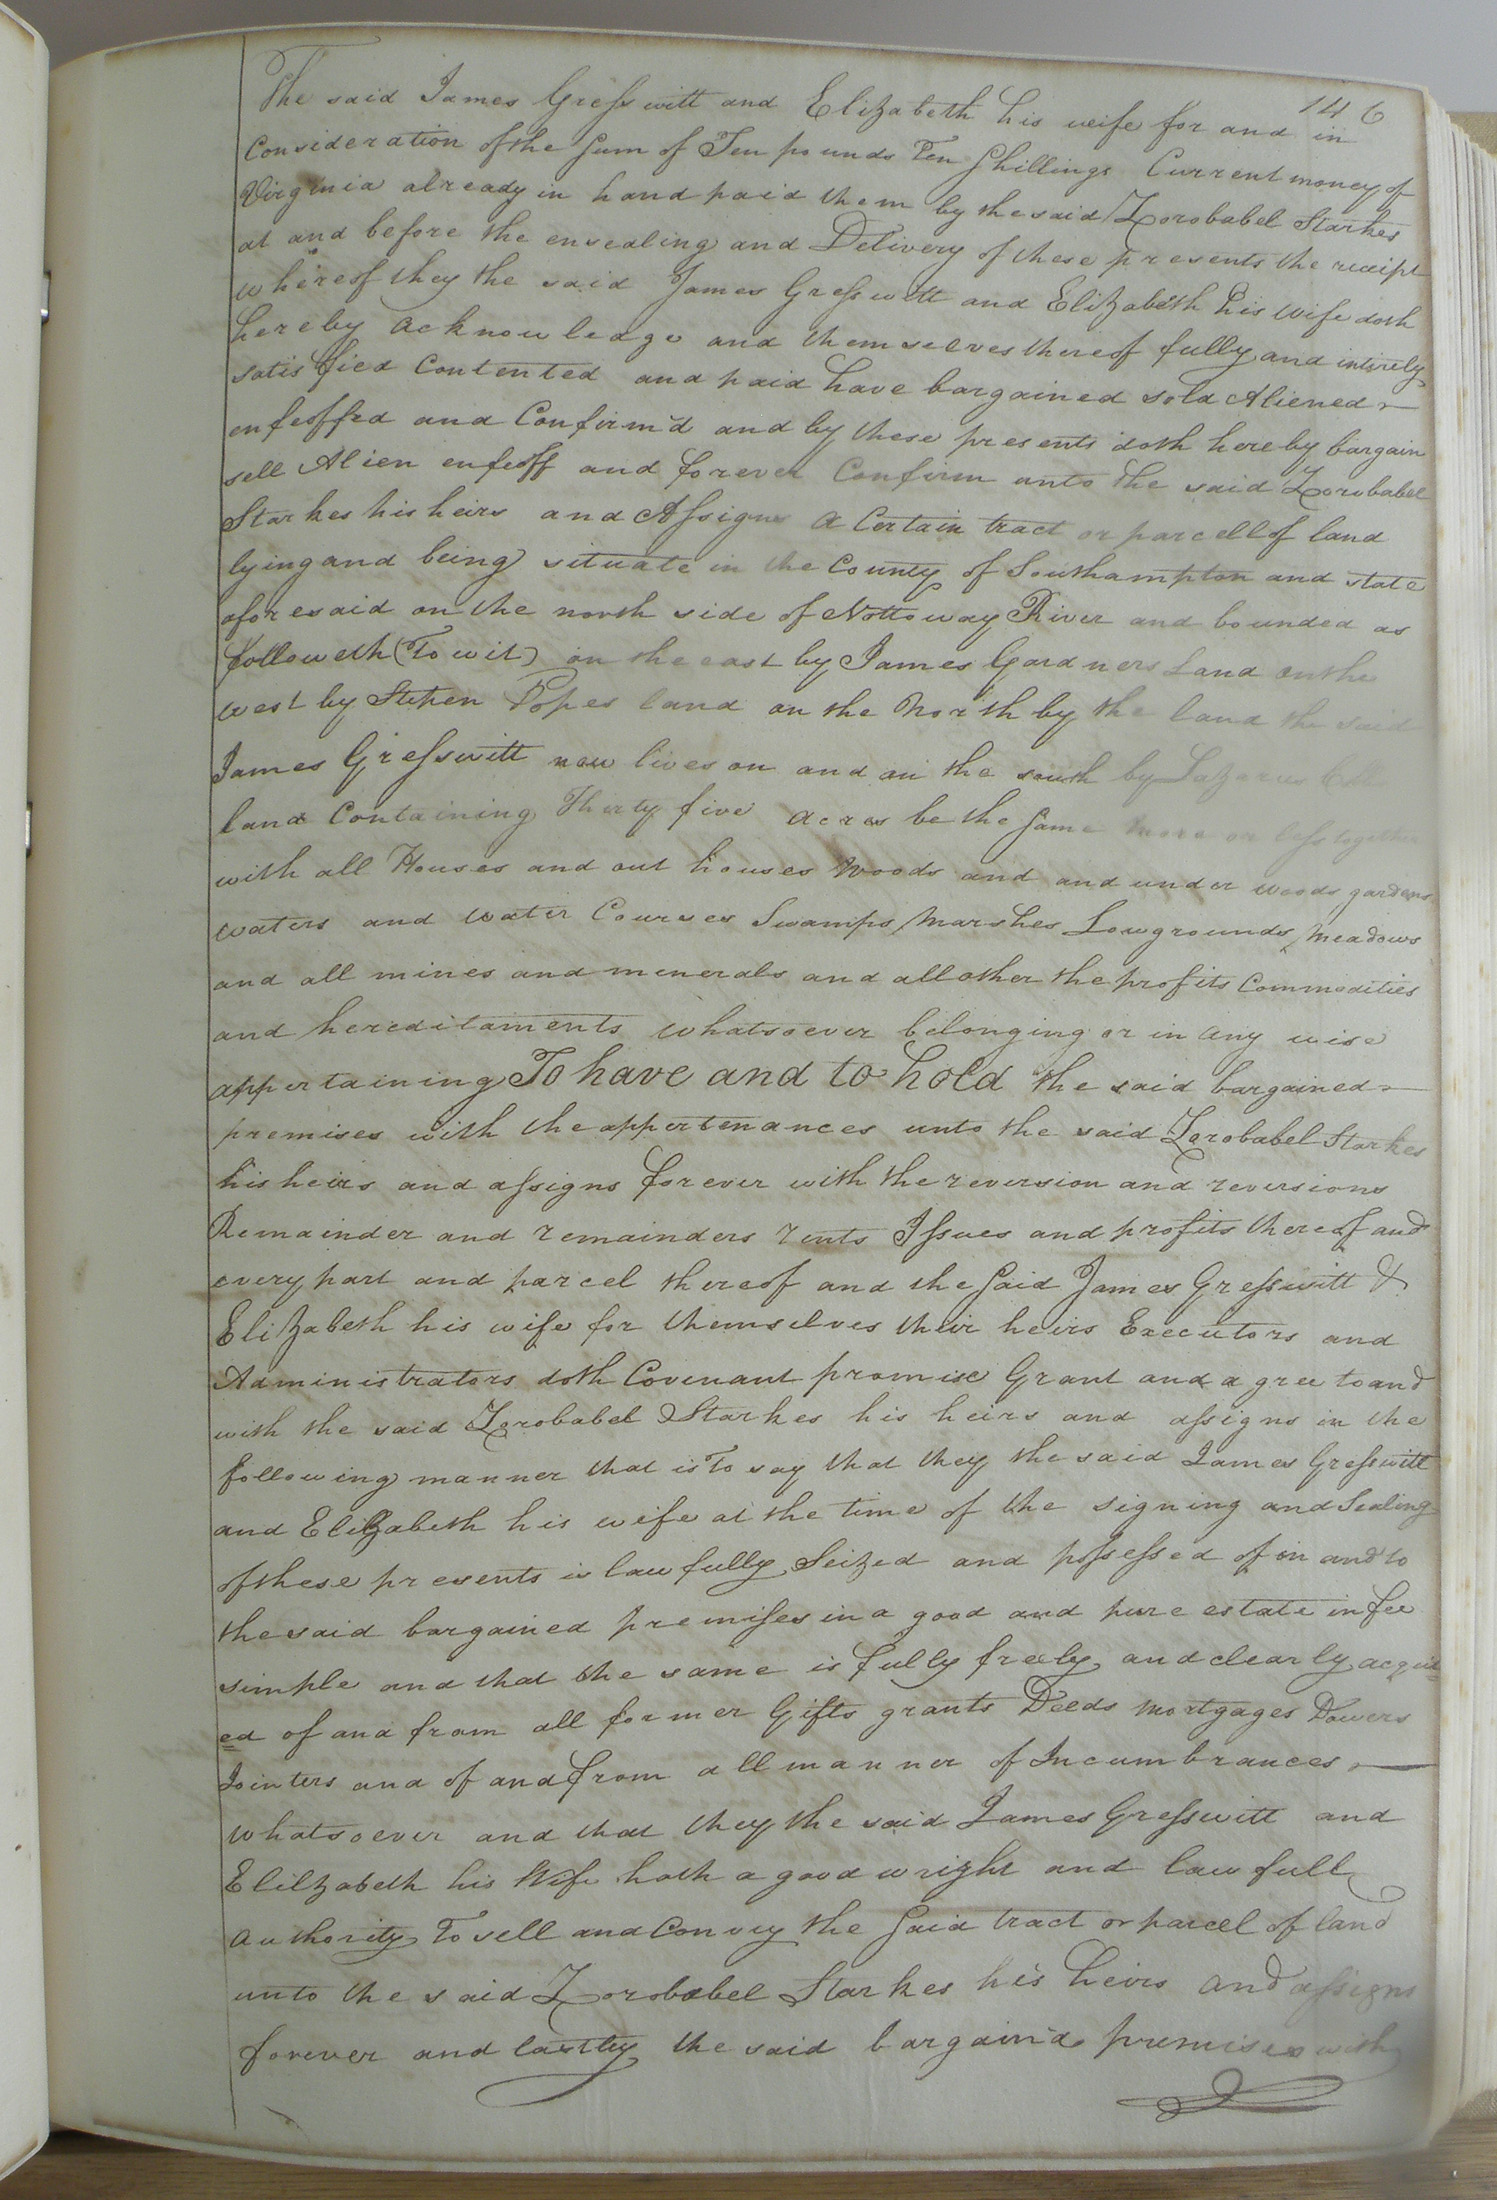 146
The said James Gresswitt and Elizabeth his wife for and in
Consideration of the Sum of Ten pounds Ten Shillings Current money of
Virginia already in hand paid them by the said Zorobabel Starkes
at and before the ensealing and Delivery of these presents the receipt
whereof they the said James Gresswitt and Elizabeth his wife doth
hereby acknowledge and themselves thereof fully and intirely
satisfied Contented and paid have bargained sold Aliened
enfeoffed and Confirm'd and by these presents doth hereby bargain
sell Alien enfeoff and forever Confirm unto the said Zorobabel
Starkes his heirs and Assigns a Certain tract or parcell of land
lying and being situate in the County of Southampton and state
aforesaid on the north side of Nottoway River and bounded as
followeth (To wit) on the east by James Gardners Land on the
west by Stephen Popes land on the North by the land the said
James Gresswitt now lives on and on the south by Lazarus
land Containing Thirty five acres be the Same more or less together
with all Houses and out houses Woods and and under woods gardens
waters and water Courses Swamps Marshes Lowgrounds Meadows
and all mines and minerals and all other the profits Commodities
and hereditaments whatsoever belonging or in any wise
appertaining To have and to hold the said bargained
premises with the appertenances unto the said Zorobabel Starkes
his heirs and assigns forever with the reversion and reversions
Remainder and remainders rents Issues and profits thereof and
every part and parcel thereof and the Said James Gresswitt &
Elizabeth his wife for themselves their heirs Executors and
Administrators doth Covenant promise Grant and agree to and
with the said Zorobabel Starkes his heirs and assigns in the
following manner that is To say that they the said James Gresswitt
and Elizabeth his wife at the time of the signing and Sealing
of these presents is lawfully Seized and possessed of in and to
the said bargained premises in a good and pure estate in fee
simple and that the same is fully freely and clearly acquit=
ed of and from all former Gifts grants Deeds Mortgages Dowers
Jointers and of and from all manner of Incumbrances
whatsoever and that they the said James Gresswitt and
Elilzabeth his Wife hath a good wright and lawfull
authority To sell and Convey the Said tract or parcel of land
unto the said Zorobabel Starkes his heirs and assigns
forever and lastly the said bargain'd premises with